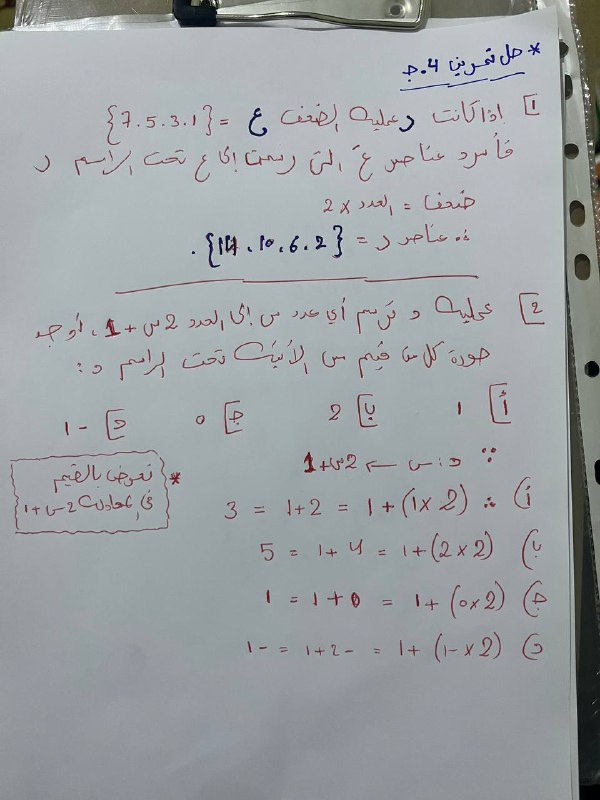 * حل تمرين 4.ج
1] إذا كانت ر عملية الضعف ع = {7.5.3.1}
فأسرد عناصر عَ التي رسمت إلى ع تحت الراسم ر
ضعف = العدد × 2
∴ عناصر ر = {14.10.6.2}.
2] عملية و ترسم أي عدد س إلى العدد 2س+1، أوجد
صورة كل من قيم س الآتية تحت الراسم و:
أ] 1 ب] 2 ج] 0 د] -1
∵ و:س ← 2س+1
أ) ∴ (2×1)+1 = 2+1 = 3
ب) (2×2)+1 = 4+1 = 5
ج) (2×0)+1 = 0+1 = 1
د) (2×-1)+1 = -2+1 = -1
* نعوض بالقيم
في المعادلة 2س+1